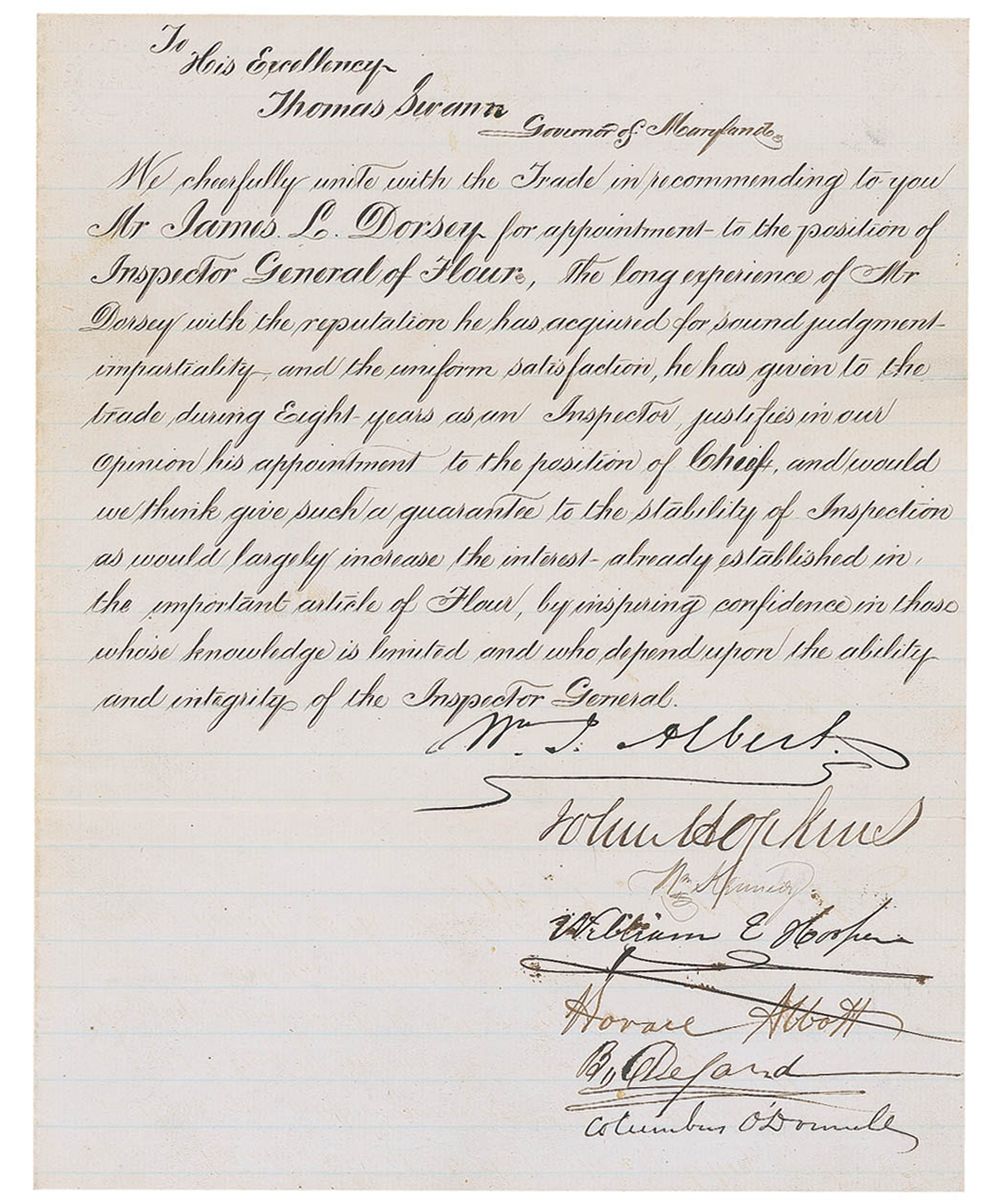 To
His Excellency
Thomas Swann
Governor of Maryland
We cheerfully unite with the Trade in recommending to you
Mr James L. Dorsey for appointment to the position of
Inspector General of Flour, the long experience of Mr
Dorsey with the reputation he has acquired for sound judgment
impartiality, and the uniform satisfaction, he has given to the
trade during Eight years as an Inspector, justifies in our
Opinion his appointment to the position of Chief, and would
we think give such a guarantee to the stability of Inspection
as would largely increase the interest already established in
the important article of Flour, by inspiring confidence in those
whose knowledge is limited and who depend upon the ability
and integrity of the Inspector General.
Wm. J. Albert
Johns Hopkins
Wm Kennedy
William E Hooper
Horace Abbott
Columbus O'Donnell